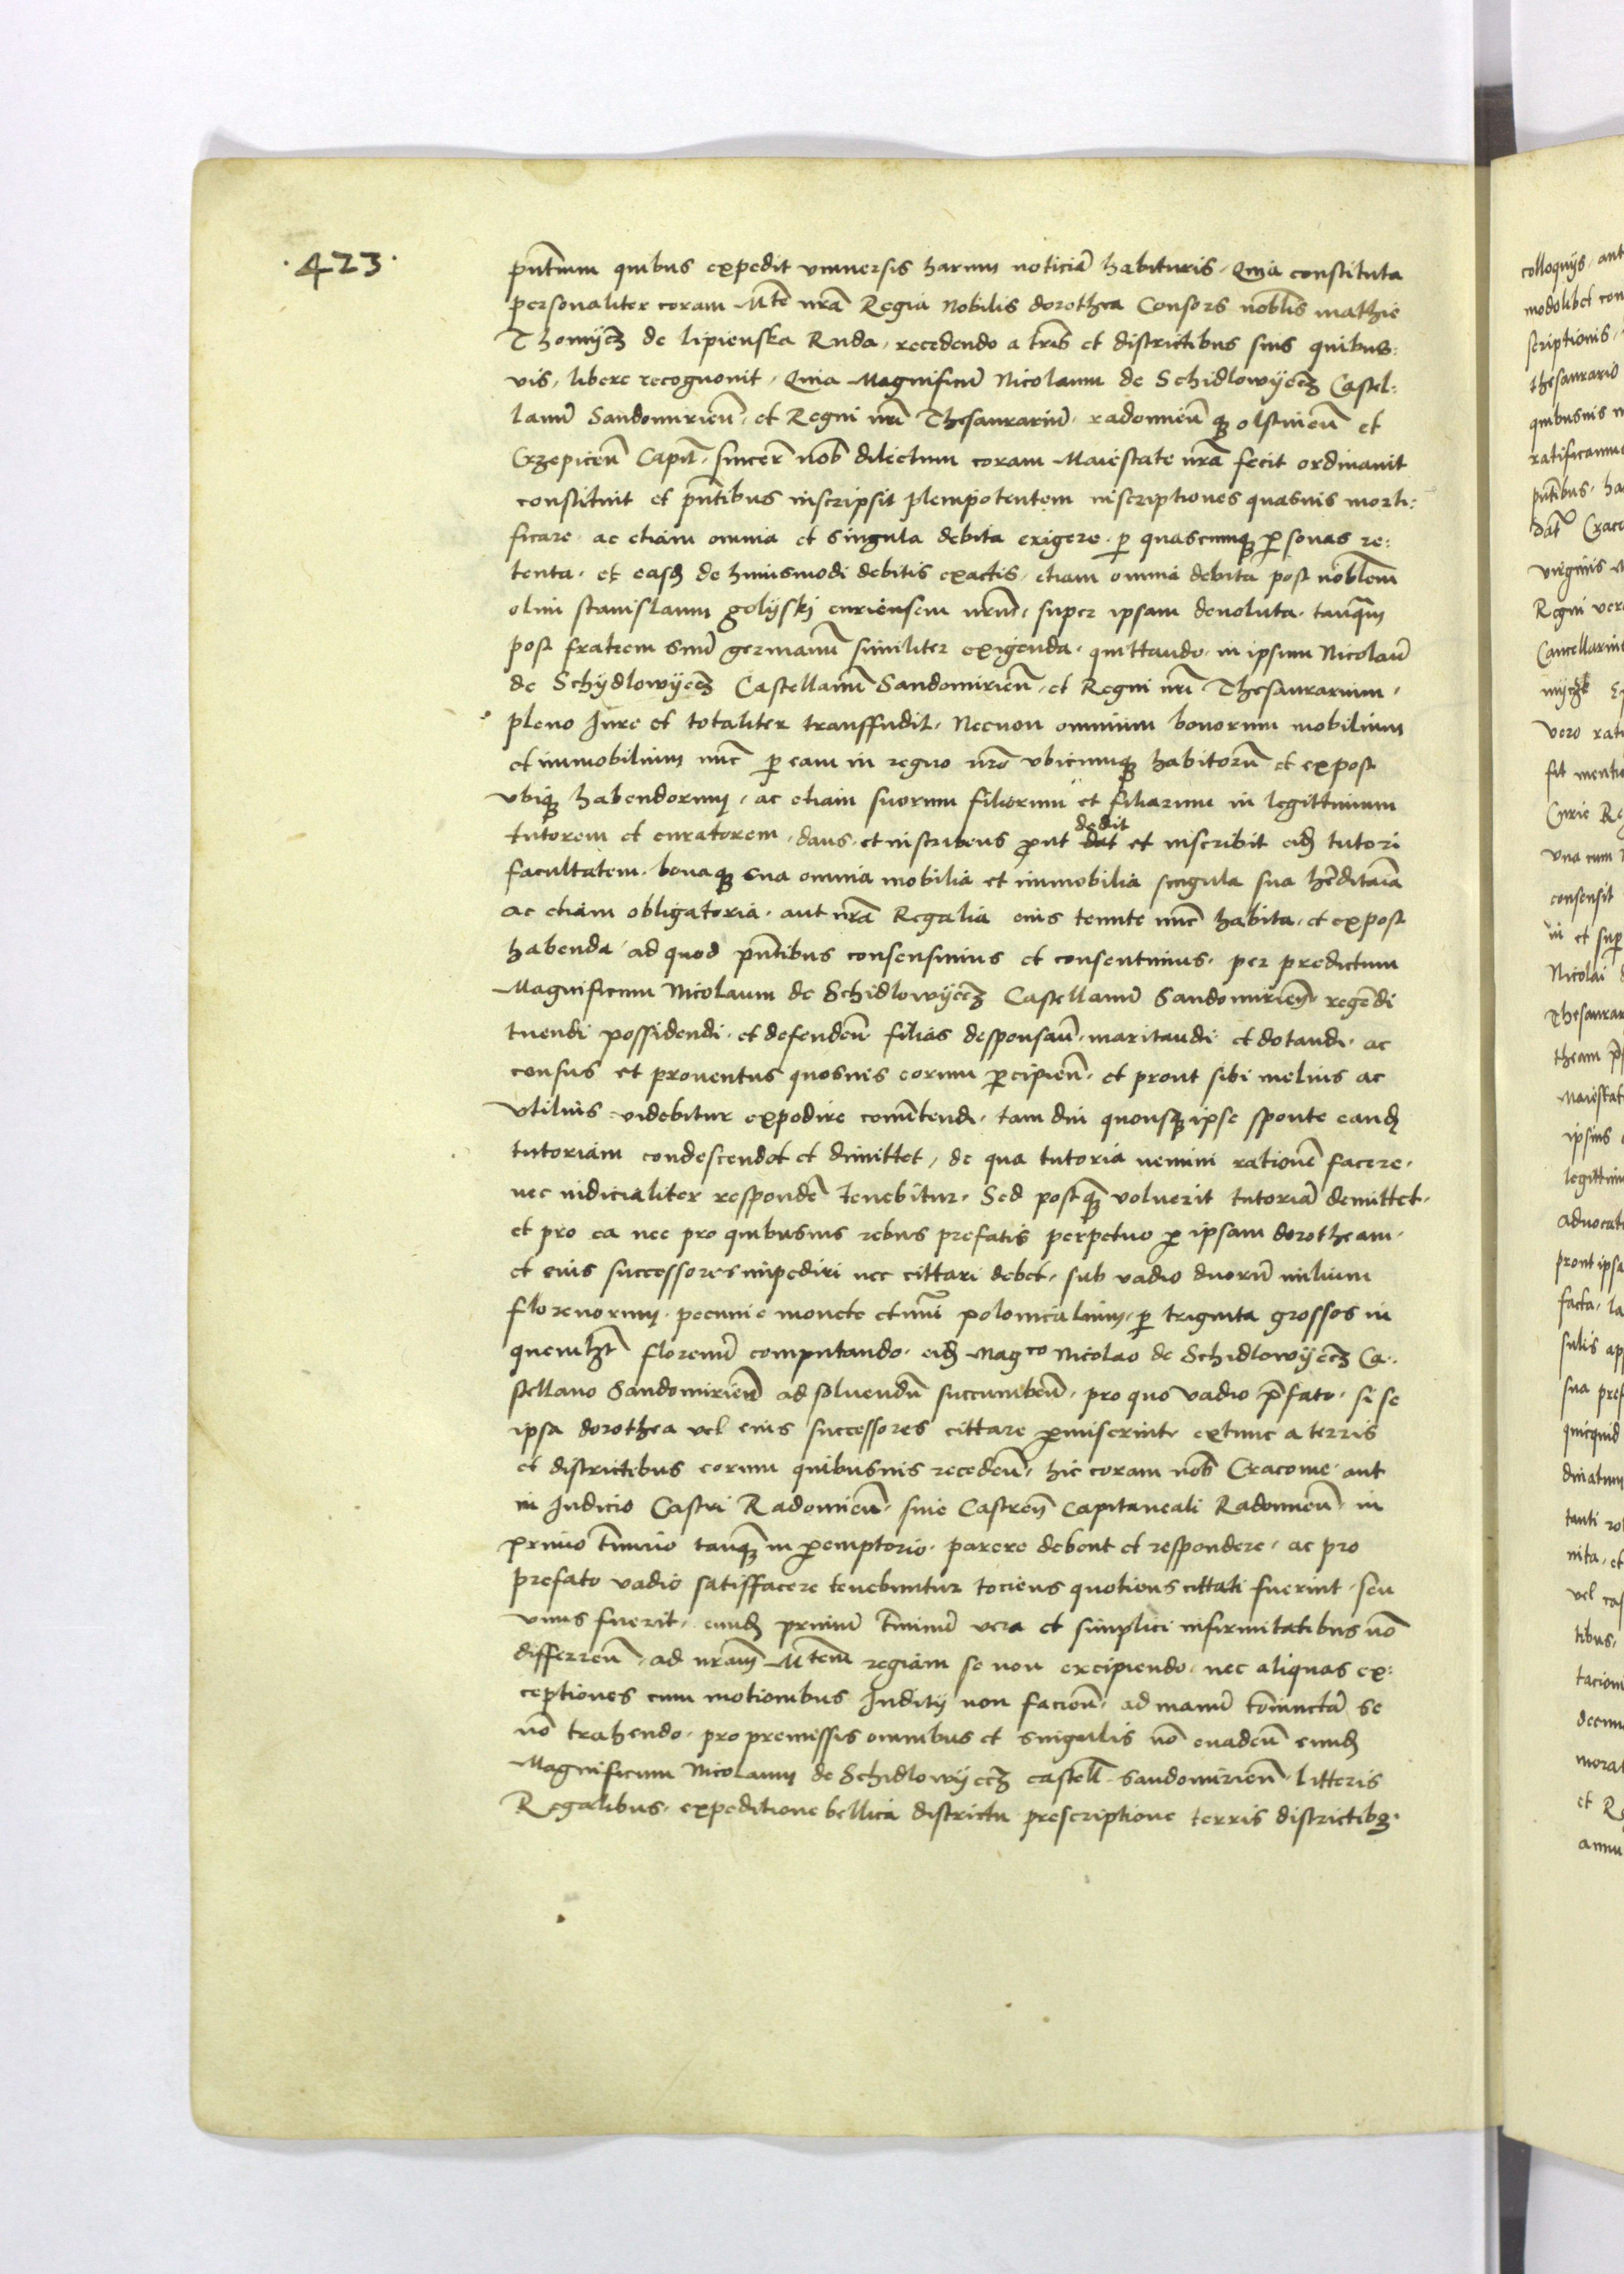 ·423·
pñtium quibus expedit vniuersis harum noticiã habituris · Quia constituta
personaliter coram Mte nrã Regia Nobilis dorothea Consors noblis mathie
Thomÿecz de lipienska Ruda, recedendo a tris et districtibus suis quibus:
vis, libere recognouit, Quia Magnificũ Nicolaum de Schidlowÿecz Castel:
lanũ Sandomirieñ, et Regni nri Thesaurariũ, radomieñ qz olstineñ et
Crzepiceñ Capit, sincer nob dilectum coram Maiestate nrã fecit ordinauit
constituit et pñtibus inscripsit plenipotentem inscriptiones quasuis morti:
ficare, ac etiam omnia et singula debita exigere, p quascumqz psonas re:
tenta, et easd de huiusmodi debitis exactis, etiam omnia debita post noblem
olim stanislaum golÿski curiensem nrm, super ipsam deuoluta, tanqm
post fratrem suũ germanũ similiter exigenda, quittando, in ipsum Nicolaũ
de Schÿdlowÿecz Castellanũ Sandomirieñ, et Regni nri Thesaurarium,
pleno Jure et totaliter transffudit, Necnon omnium bonorum mobilium
et immobilium nũc p eam in regno nro vbicumqz habitorũ et expost
vbiqz habendorum, ac etiam suorum filiorum et filiarum in legittimum
tutorem et curatorem, dans et inscribens prout dat dedit et inscribit eid tutori
facultatem, bonaqz sua omnia mobilia et immobilia singula sua hẽditaria
ac etiam obligatoria, aut nrã Regalia eius tenute nũc habita, et expost
habenda, ad quod pñtibus consensimus et consentimus, per predictum
Magnificum Nicolaum de Schidlowÿecz Castellanũ Sandomirieñ, regẽdi
tuendi possidendi, et defendeñ filias desponsañ, maritandi et dotandi, ac
census et prouentus quosuis eorum pcipieñ, et prout sibi melius ac
vtilius videbitur expedire comittendi, tam diu quousqz ipse sponte eand
tutoriam condescendet et dimittet, de qua tutoria nemini rationẽ facere,
nec iudicialiter respondẽ tenebitur, Sed postqz voluerit tutoriã demittet,
et pro ea nec pro quibusuis rebus prefatis perpetuo p ipsam dorotheam,
et eius successores impediri nec cittari debet, sub vadio duorũ milium
florenorum, pecunie monete et nũi polonicalium, p triginta grossos in
quemlzt florenũ computando, eid Magco Nicolao de Schidlowÿecz Ca:
stellano Sandomirieñ ad soluendũ succumbeñ, pro quo vadio pfato, si se
ipsa dorothea vel eius successores cittare pmiserint, extunc a terris
et districtibus eorum quibusuis recedeñ, hic coram nob Cracouie, aut
in Judicio Castri Radomieñ, siue Castreñ Capitaneali Radomieñ, in
primo tmino tanqz in pemptorio, parere debent et respondere, ac pro
prefato vadio satisffacere tenebuntur tociens quotiens cittati fuerint, seu
vnus fuerit, eund primũ tminũ vera et simplici infirmitatibus nõ
differreñ, ad nram Mtem regiam se non excipiendo, nec aliquas ex:
ceptiones cum motionibus Juditÿ non facieñ, ad manũ coniunctã se
nõ trahendo, pro premissis omnibus et singulis nõ euadeñ eund
Magnificum Nicolaum de Schidlowÿecz castell Sandomirieñ, litteris
Regalibus, expeditione bellica districtu prescriptione terris districtibz,
colloquÿs, ant
modolibet con
scriptionis,
thesaurario
quibusuis
ratificamus
pñtibus, ha
Dat Crac
virginis
Regni ver
Cancellariũ
vero rat
fit mentio
Curie Re
Vna cum
consensit
in et sup
Nicolai
Thesaurar
theam
Maiestat
ipsius
legittim
aduocat
prout ipsa
facta, la
sulis ap
sua pref
quicquid
dinatum
tanti
nita, et
vel cas
tibus,
tacioni
decem
morat
et R
annu